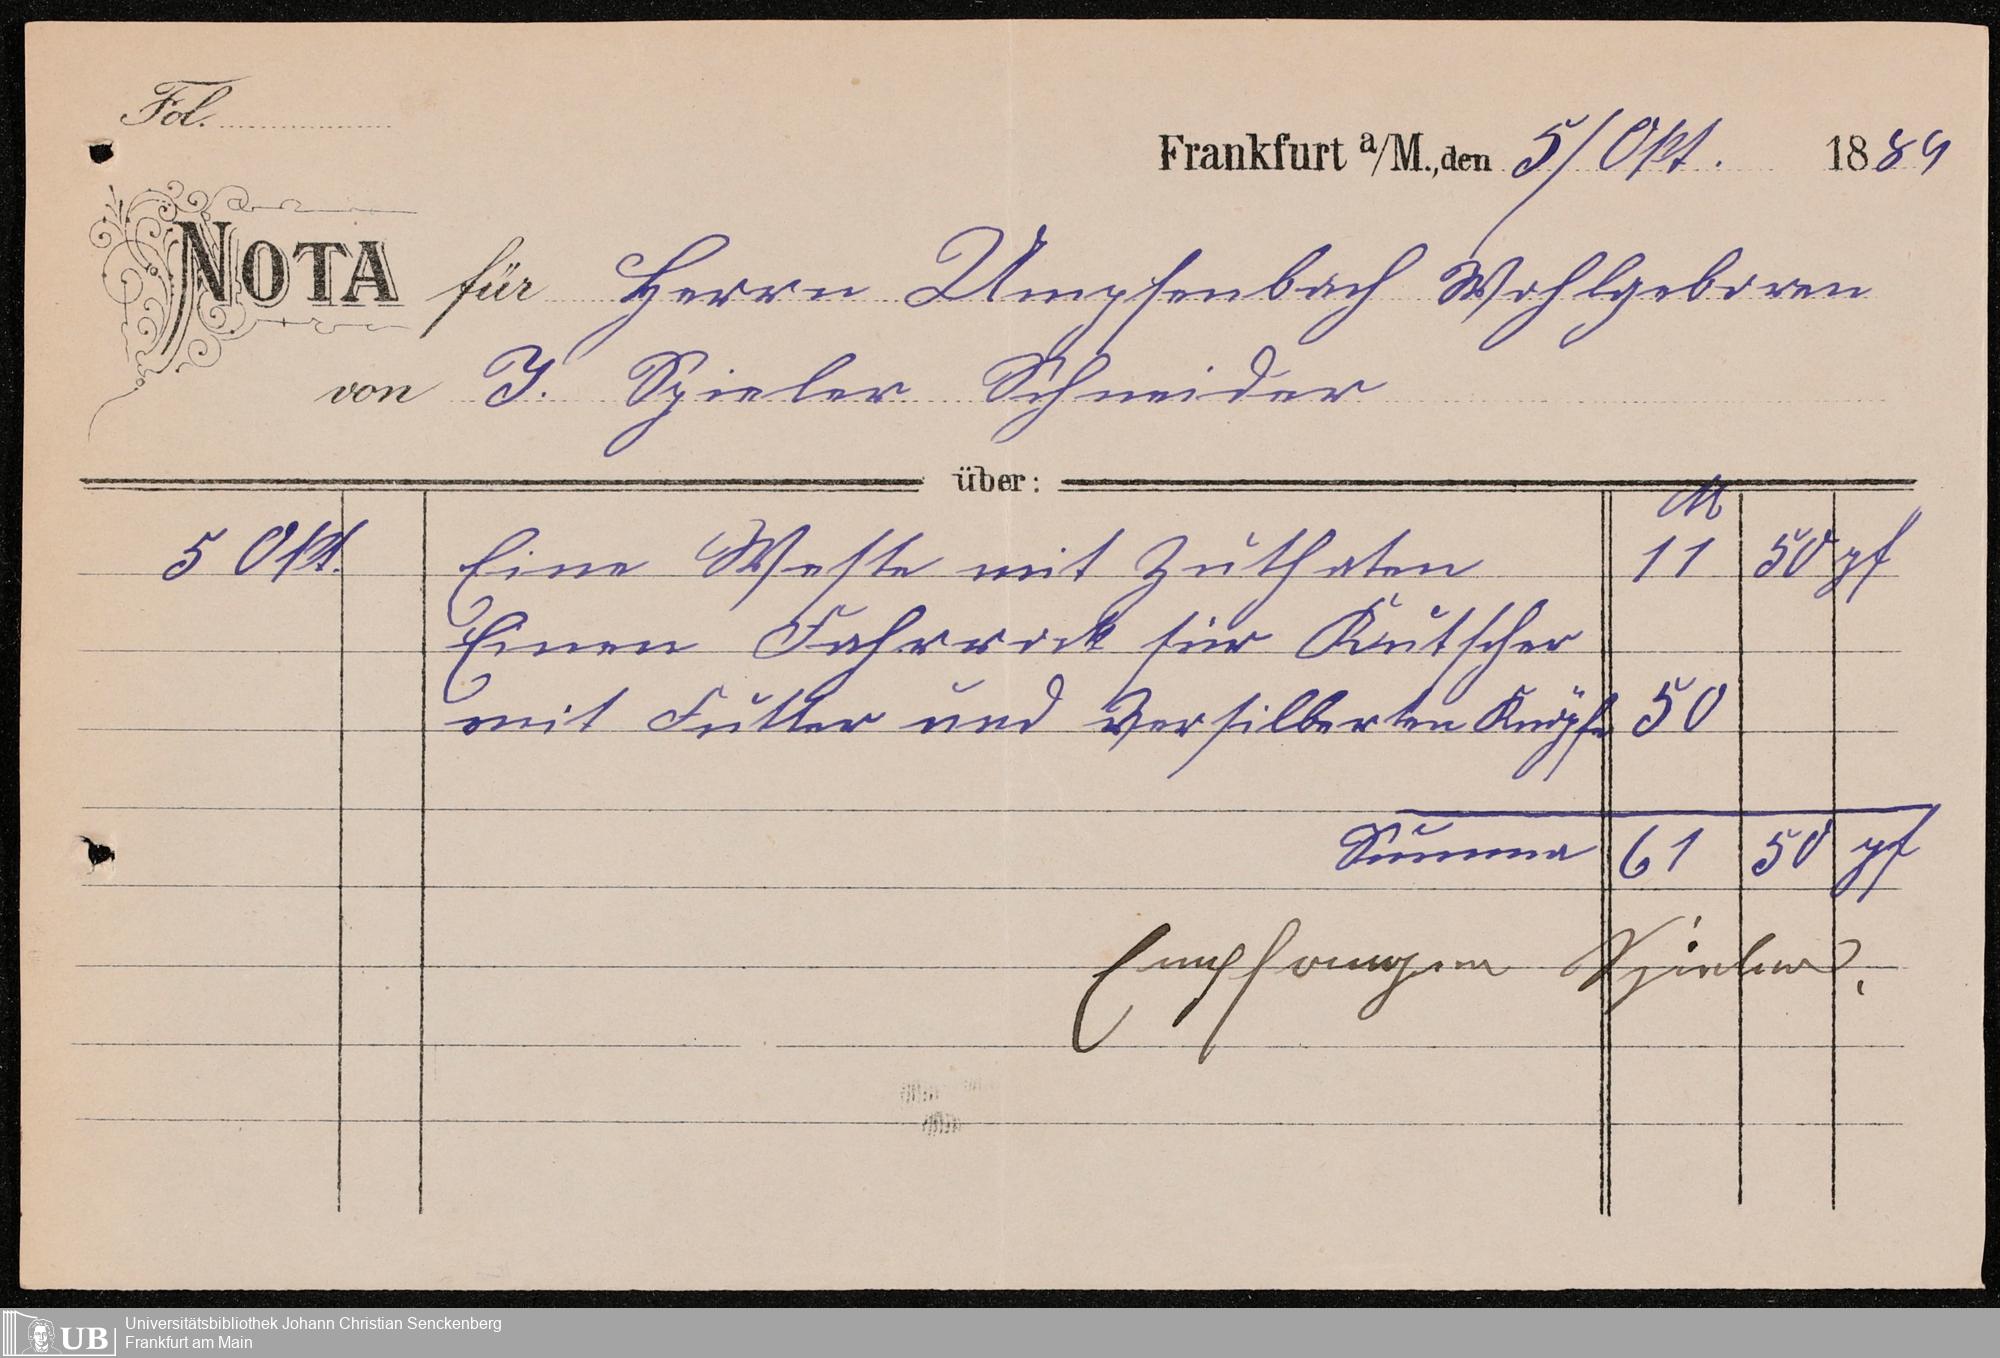 Fol.
Frankfurt a/M., den 5/Okt. 1889
NOTA für Herrn Umpfenbach Wohlgeboren
von J. Spieler Schneider
über:
M
5 Okt. Eine Weste mit Zuthaten 11 50 pf
Einen Fahrrock für Kutscher
mit Futter und versilberten Knöpfe 50
Summa 61 50 pf
Empfangen Spieler.
UB Universitätsbibliothek Johann Christian Senckenberg
Frankfurt am Main